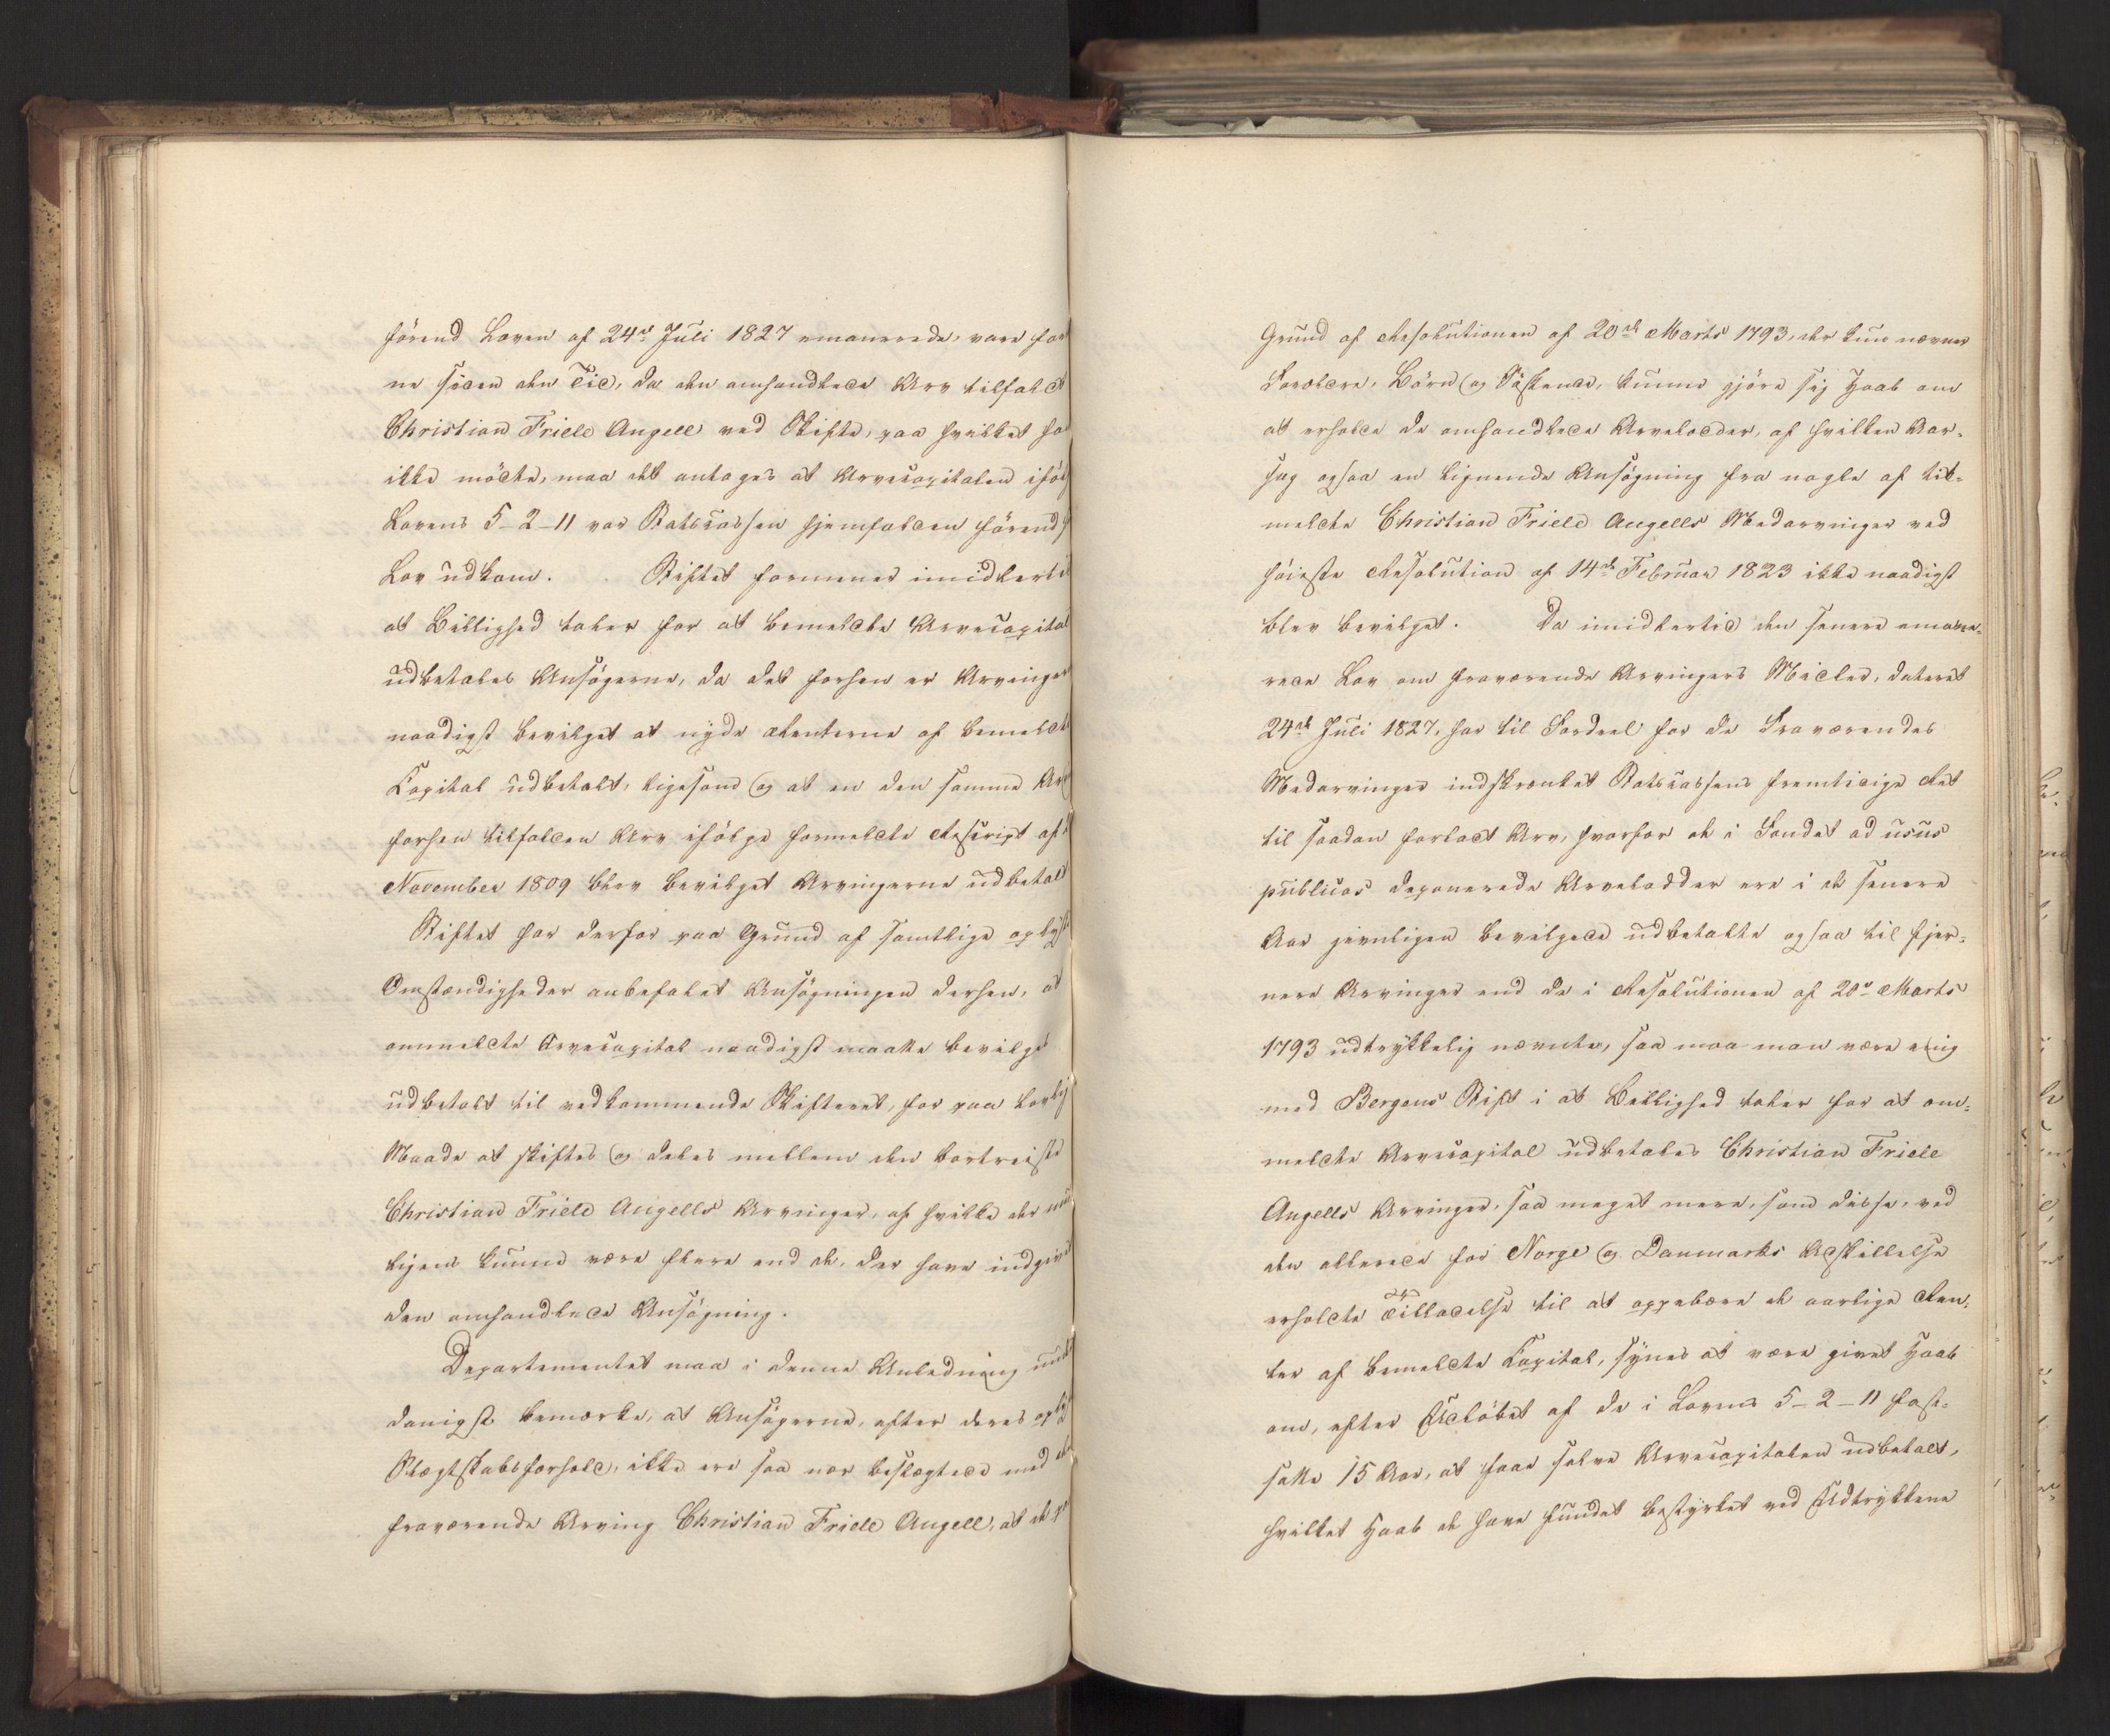 förend Loven af 24de Juli 1827 emanerede, vare for
ne siden den Tid, da den omhandlede Arv tilfaldt
Christian Friele Angell ved Skifte, paa hvilket han
ikke mödte, maa det antages at Arvecapitalen iföl
Lovens 5-2-11 var Statscassen hjemfalden förend
Lov udkom. Stiftet formener imidlerti
at Billighed taler for at bemeldte Arvecapital
udbetales Ansögerne, da det forhen er Arvinger
naadigst bevilget at nyde Renterne af bemeldte
Capital udbetalt, ligesom og at en den samme Arv
forhen tilfalden Arv ifölge formeldte Rescript af
November 1809 blev bevilget Arvingerne udbetalt
Stiftet har derfor paa Grund af samtlige oplyste
Omstændigheder anbefalet Ansögningen derhen, at
ommeldte Arvecapital naadigst maatte bevilge
udbetalt til vedkommende Skifteret, for paa lovlig
Maade at skiftes og deles mellem den bortreiste
Christian Friele Angells Arvinger, af hvilke der
ligens kunne være flere end de, der have indgivet
den omhandlede Ansögning.
Departementet maa i denne Anledning under
danigst bemærke, at Ansögerne, efter deres
Slægtskabsforhold, ikke ere saa nær beslægtede med
fraværende Arving Christian Friele Angell, at de
Grund af Resolutionen af 20de Marts 1793, der kun nævner
Forældre, Börn og Södskende, kunne gjöre sig Haab om
at erholde de omhandlede Arvelodder, af hvilken Aar-
sag ogsaa en lignende Ansögning fra nogle af bi-
meldte Christian Friele Angells Medarvinger ved
höieste Resolution af 14de Februar 1823 ikke naadigst
blev bevilget. Da imidlertid den senere emane-
rede Lov om fraværende Arvingers Midler, dateret
24de Juli 1827, har til Fordeel for de Fraværendes
Medarvinger indskrænket Statscassens fremtidige Ret
til saadan forladt Arv, hvorfor de i Fondet ad usus
publicos deponerede Arvelodder ere i de senere
Aar jevnligen bevilgede udbetalte ogsaa til fjer-
nere Arvinger end de i Resolutionen af 20de Marts
1793 udtrykkelig nævnte, saa maa man være enig
med Bergens Stift i at Billighed taler for at om-
meldte Arvecapital udbetales Christian Friele
Angells Arvinger, saa meget mere, som disse, ved
den allerede för Norge og Danmarks Adskillelse
erholdte Tilladelse til at oppebære de aarlige Ren-
ter af bemeldte Capital, synes at være givet Haab
om, efter Udlöbet af de i Lovens 5-2-11 fast-
satte 15 Aar, at faae selve Arvecapitalen udbetalt,
hvilket Haab de have fundet bestyrket ved Udtrykkene